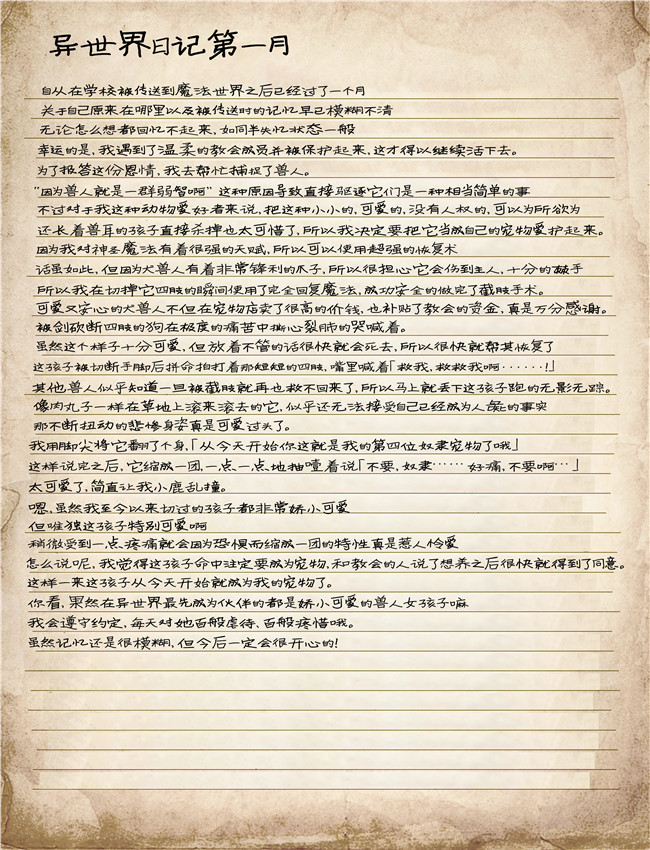 异世界日记第一月
自从在学校被传送到魔法世界之后已经过了一个月
关于自己原来在哪里以及被传送时的记忆早已模糊不清
无论怎么想都回忆不起来，如同半失忆状态一般
幸运的是，我遇到了温柔的教会成员并被保护起来，这才得以继续活下去。
为了报答这份恩情，我去帮忙捕捉了兽人。
“因为兽人就是一群弱智啊”这种原因导致直接驱逐它们是一种相当简单的事
不过对于我这种动物爱好者来说，把这种小小的，可爱的，没有人权的，可以为所欲为
还长着兽耳的孩子直接杀掉也太可惜了，所以我决定要把它当成自己的宠物爱护起来。
因为我对神圣魔法有着很强的天赋，所以可以使用超强的恢复术
话虽如此，但因为犬兽人有着非常锋利的爪子，所以很担心它会伤到主人，十分的棘手
所以我在切掉它四肢的瞬间使用了完全回复魔法，成功安全的做完了截肢手术。
可爱又安心的犬兽人不但在宠物店卖了很高的价钱，也补贴了教会的资金，真是万分感谢。
被剑砍断四肢的狗在极度的痛苦中撕心裂肺的哭喊着。
虽然这个样子十分可爱，但放着不管的话很快就会死去，所以很快就帮其恢复了
这孩子被切断手脚后拼命拍打着那短短的四肢，嘴里喊着「救我，救救我啊······！」
其他兽人似乎知道一旦被截肢就再也救不回来了，所以马上就丢下这孩子跑的无影无踪。
像肉丸子一样在草地上滚来滚去的它，似乎还无法接受自己已经成为人彘的事实
那不断扭动的悲惨身姿真是可爱过头了。
我用脚尖将它翻了个身，「从今天开始你这就是我的第四位奴隶宠物了哦」
这样说完之后，它缩成一团，一点一点地抽噎着说「不要，奴隶······好痛，不要啊···」
太可爱了，简直让我小鹿乱撞。
嗯，虽然我至今以来切过的孩子都非常娇小可爱
但唯独这孩子特别可爱啊
稍微受到一点疼痛就会因为恐惧而缩成一团的特性真是惹人怜爱
怎么说呢，我觉得这孩子命中注定要成为宠物，和教会的人说了想养之后很快就得到了同意。
这样一来这孩子从今天开始就成为我的宠物了。
你看，果然在异世界最先成为伙伴的都是娇小可爱的兽人女孩子嘛
我会遵守约定，每天对她百般虐待、百般疼惜哦。
虽然记忆还是很模糊，但今后一定会很开心的！